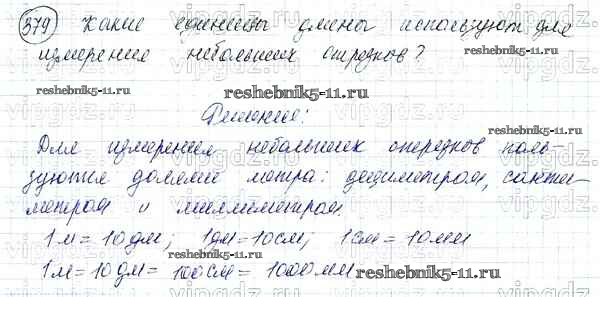 379 Какие единицы длины используют для
измерения небольших отрезков?
reshebnik5-11.ru
reshebnik5-11.ru
Решение:
reshebnik5-11.ru
Для измерения небольших отрезков поль-
зуются долями метра: дециметром, санти-
метром и миллиметром.
1м = 10дм; 1дм = 10см; 1см = 10мм
1м = 10дм = 100см = 1000мм
reshebnik5-11.ru
reshebnik5-11.ru